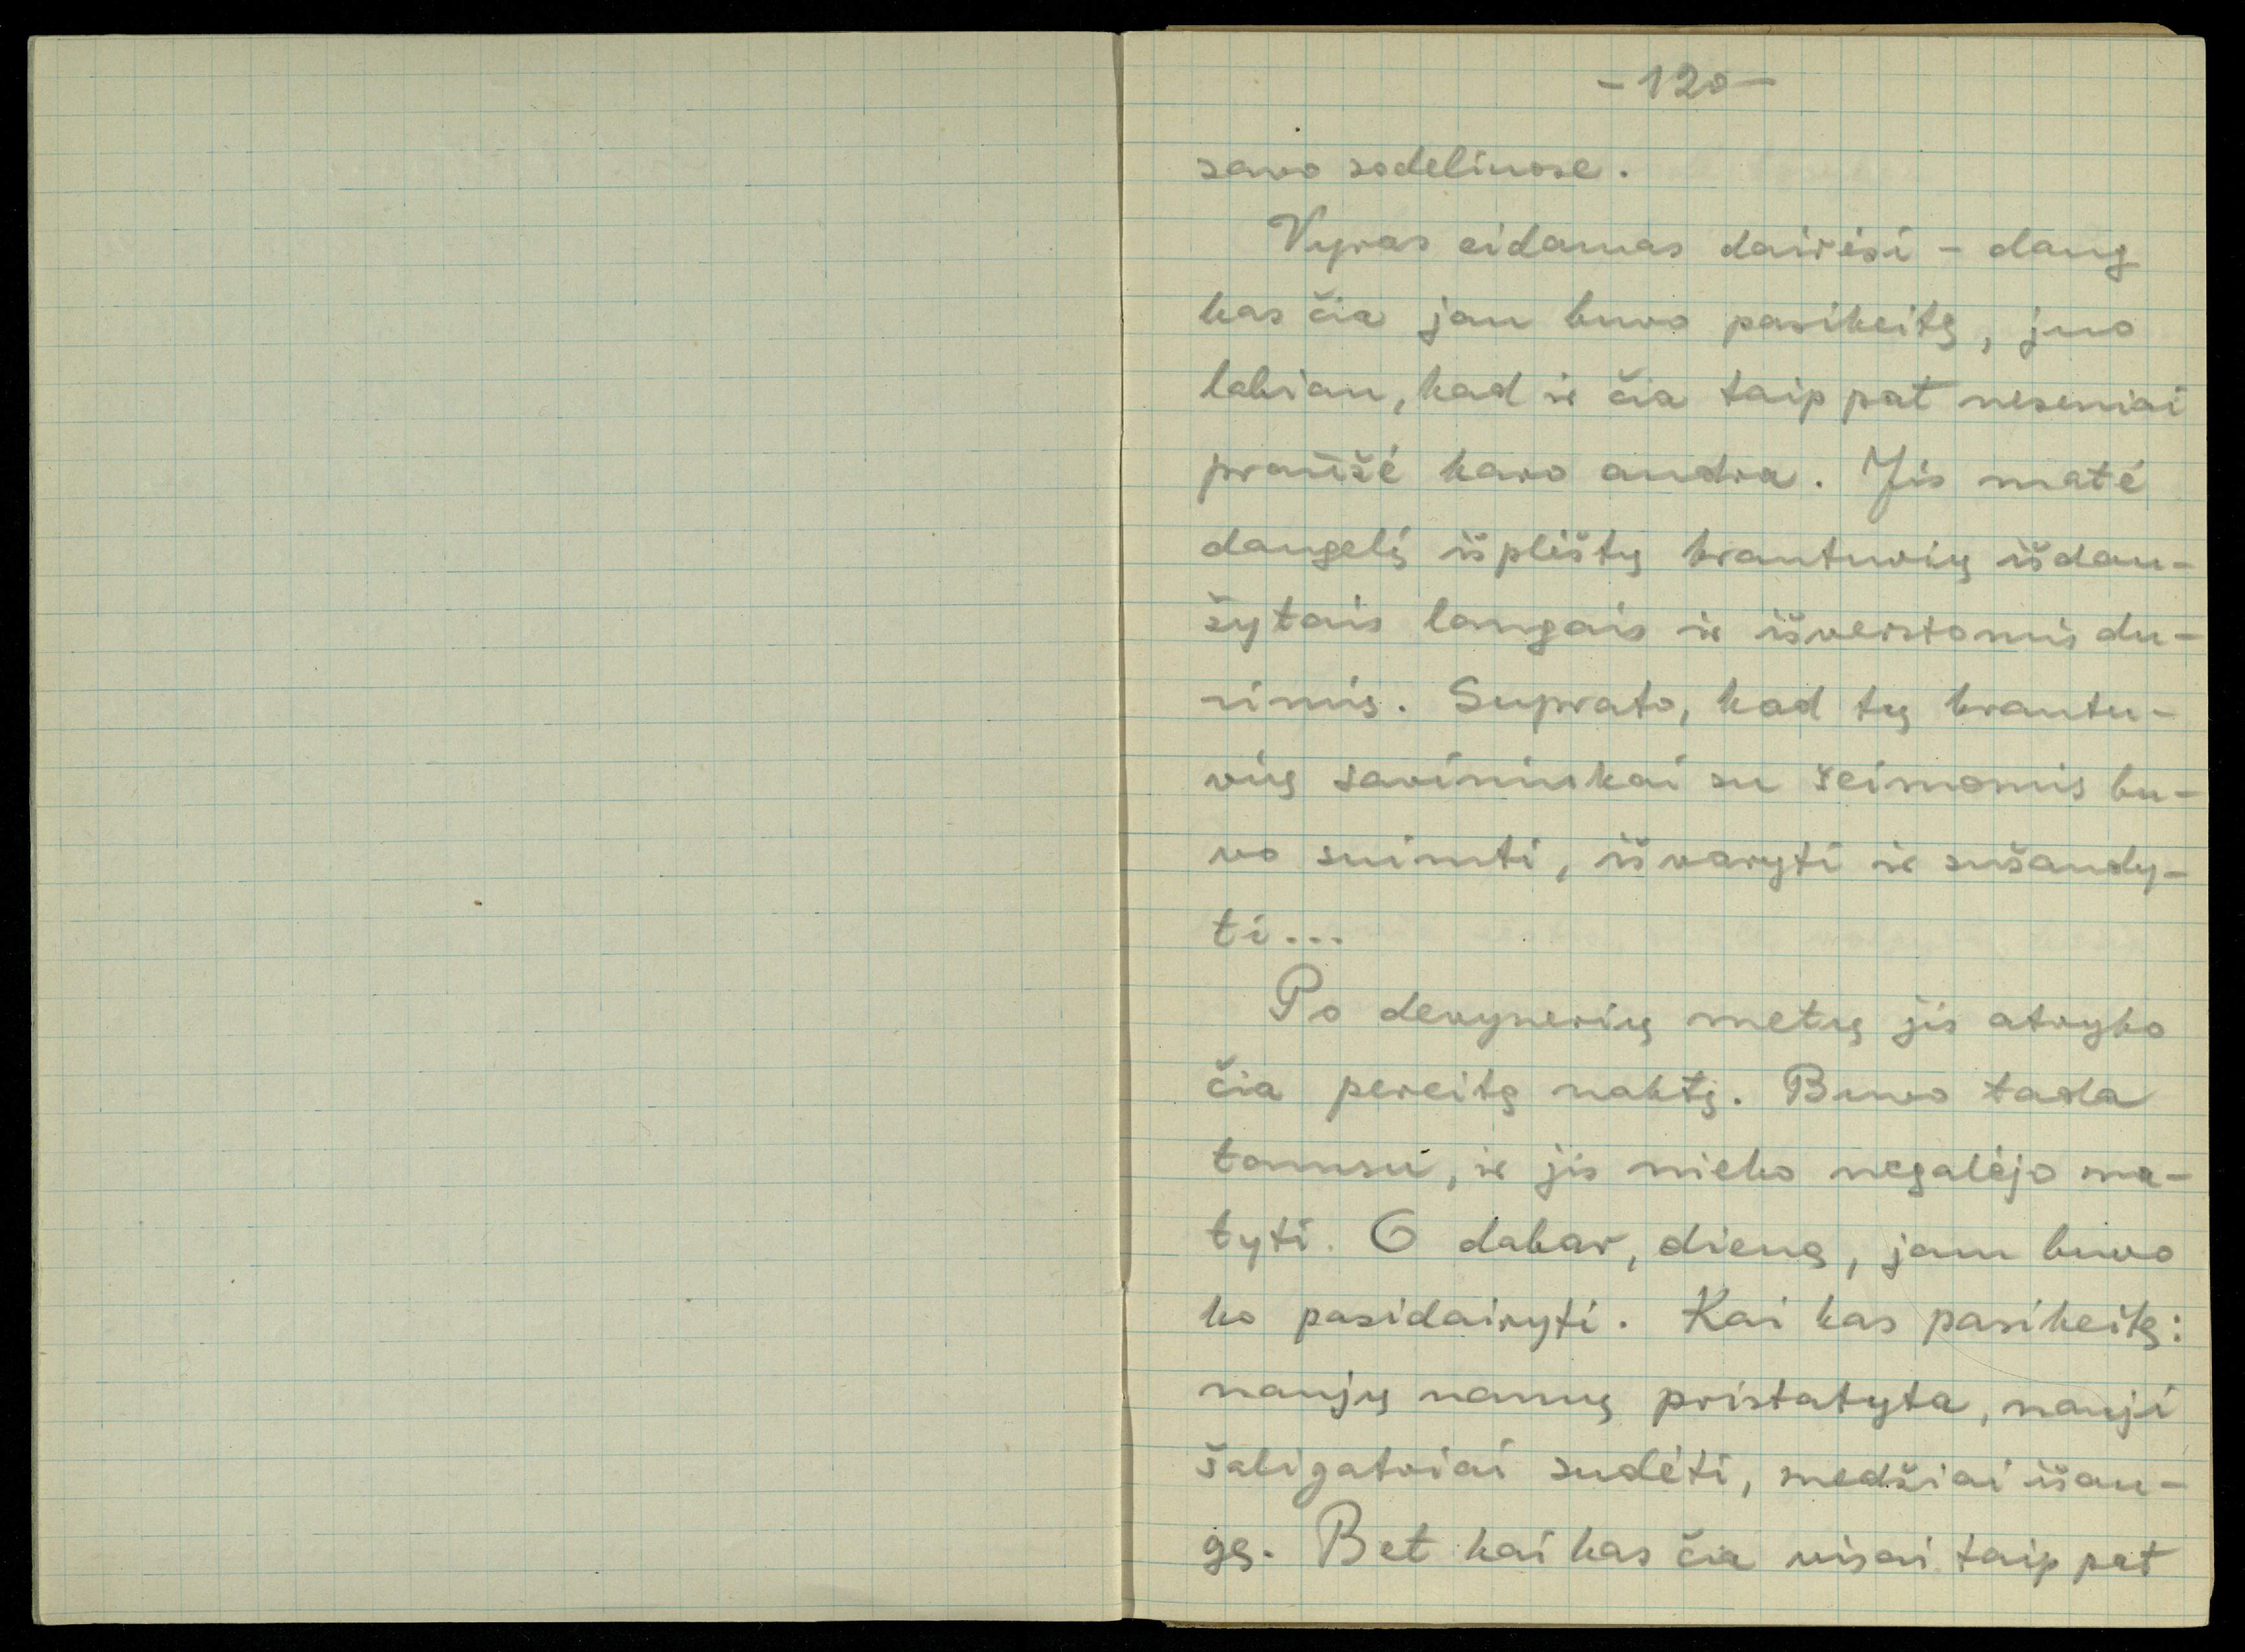 -120-
savo sodeliuose.
Vyras eidamas dairėsi - daug
kas čia jau buvo pasikeitę, juo
labiau, kad ir čia taip pat neseniai
praūžė karo audra. Jis matė
daugelį išplėštų krautuvių išdau-
žytais langais ir išverstomis du-
rimis. Suprato, kad tų krautu-
vių savininkai su šeimomis bu-
vo suimti, išvaryti ir sušaudy-
ti...
Po devynerių metų jis atvyko
čia pereitą naktį. Buvo tada
tamsu, ir jis nieko negalėjo ma-
tyti. O dabar, dieną, jam buvo
ko pasidairyti. Kai kas pasikeitę:
naujų namų pristatyta, nauji
šaligatviai sudėti, medžiai išau-
gę. Bet kai kas čia visai taip pat